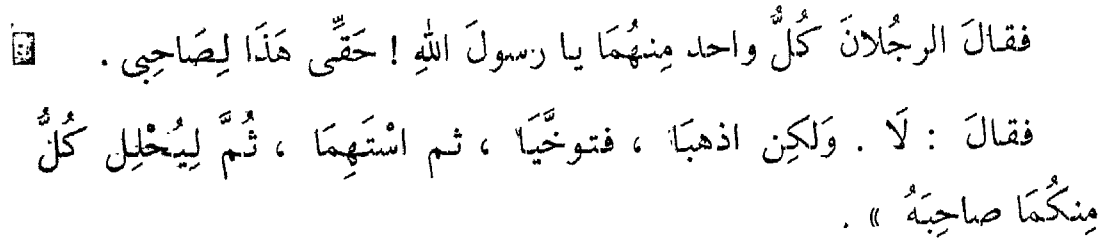 فقالَ الرجُلانَ كُلُّ واحد مِنهُمَا يا رسولَ اللهِ ! حَقِّى هَذَا لِصَاحِبِى .
فقالَ : لَا . وَلَكِن اذهبَا ، فتوخَّيَا ، ثم اسْتَهِمَا ، ثُمَّ لِيُحْلِل كُلُّ
مِنكُمَا صاحِبَهُ » .